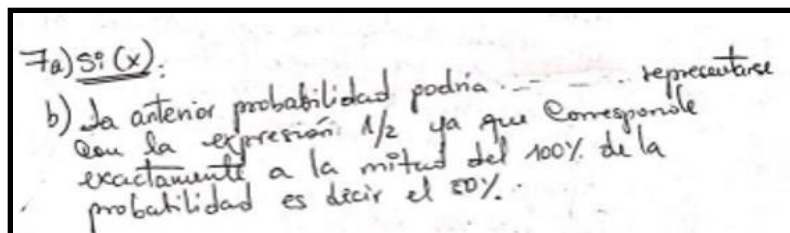 7a) Si (x).
b) La anterior probabilidad podría --- --- representarse
con la expresión 1/2 ya que Corresponde
exactamente a la mitad del 100% de la
probabilidad es decir el 50%.